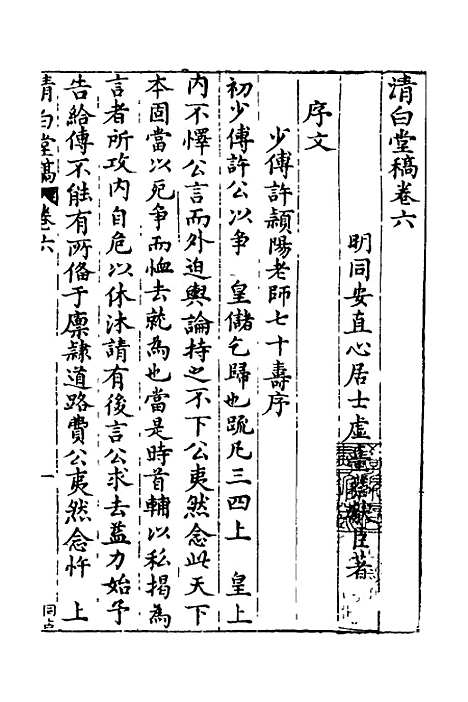 清白堂稿卷六
明同安直心居士虛臺蔡獻臣著
序文
少傅許潁陽老師七十壽序
初少傅許公以争 皇儲乞歸也疏凡三四上 皇上
内不懌公言而外迫輿論持之不下公夷然念此天下
本固當以死争而恤去就為也當是時首輔以私揭為
言者所攻内自危以休沐請有後言公求去益力始予
告給傳不能有所偹于廪隷道路費公夷然念忤 上
清白堂稿 卷六 一